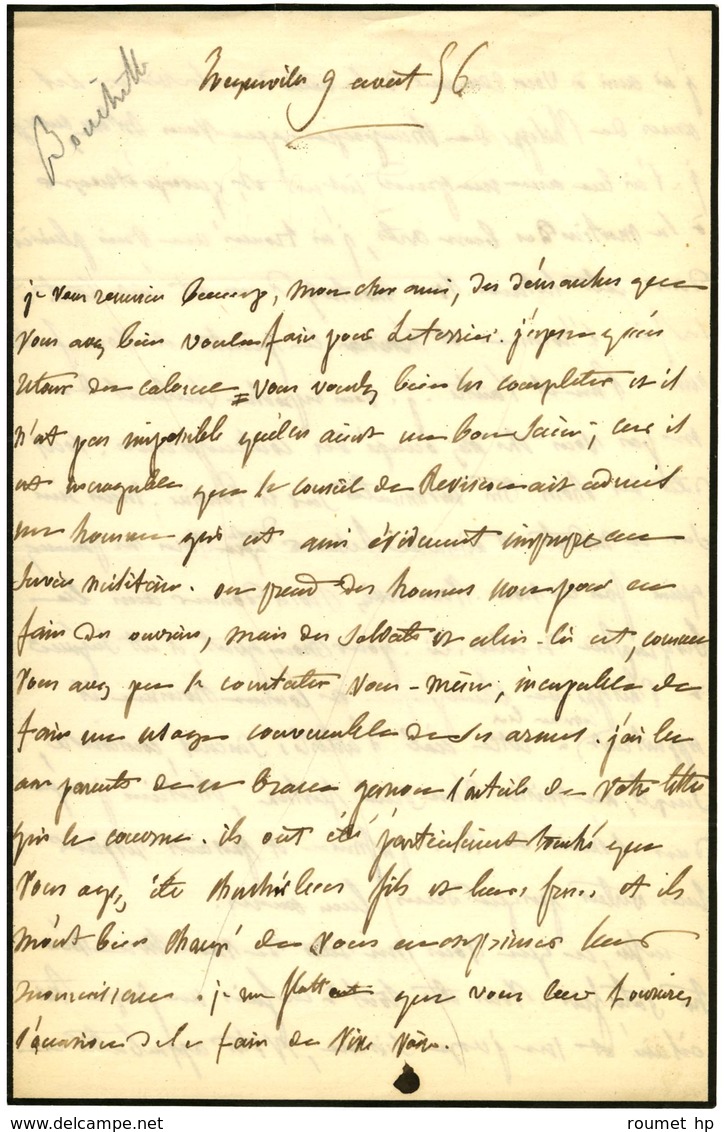 Bouchitté
9 août 56
je vous remercie beaucoup, mon cher ami, des démarches que
vous avez bien voulu faire pour Leterrier. j'espère qu'au
retour de vous voudrez bien les completer et il
n'est pas impossible qu'elles aient un bon Succès; car il
est incroyable que le conseil de Revision ait admis
un homme qui est aussi évidemment impropre au
Service militaire. on prend des hommes non pour en
faire des ouvriers, mais des Soldats et celui-là est, comme
vous avez pu le constater vous-même, incapable de
faire un usage convenable de ses armes. j'ai lu
aux parents de ce brave garçon l'article de votre lettre
qui le concerne. ils ont été particulièrement touchés que
vous ayez été chercher leur fils et leur frère et ils
m'ont bien chargé de vous en exprimer leur
reconnaissance. je me flatte que vous leur fournirez
l'occasion de le faire de vive voix.
roumet hp